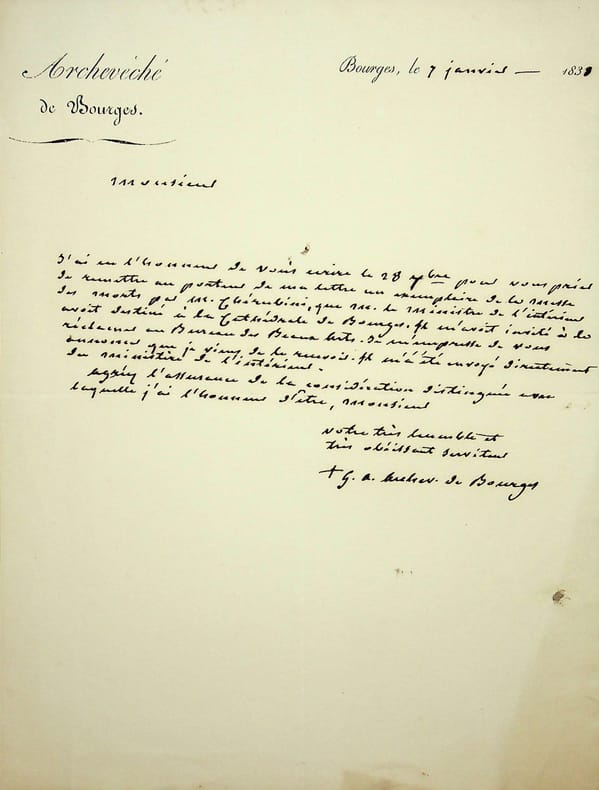 Archevêché
de Bourges.
Bourges, le 7 janvier — 183
Monsieur
J'ai eu l'honneur de vous écrire le 28 9bre pour vous prier
de remettre au porteur de ma lettre un exemplaire de la messe
des morts par M. Chérubini, que M. le ministre de l'intérieur
avoit destiné à la Cathédrale de Bourges. Il m'avoit invité à le
réclamer au Bureau des Beaux Arts. Je m'empresse de vous
annoncer que je viens de le recevoir. Il m'a été envoyé directement
du ministère de l'intérieur.
agréez l'assurance de la considération distinguée avec
laquelle j'ai l'honneur d'être, Monsieur
votre très humble et
très obéissant serviteur
+ G. a. archev. de Bourges